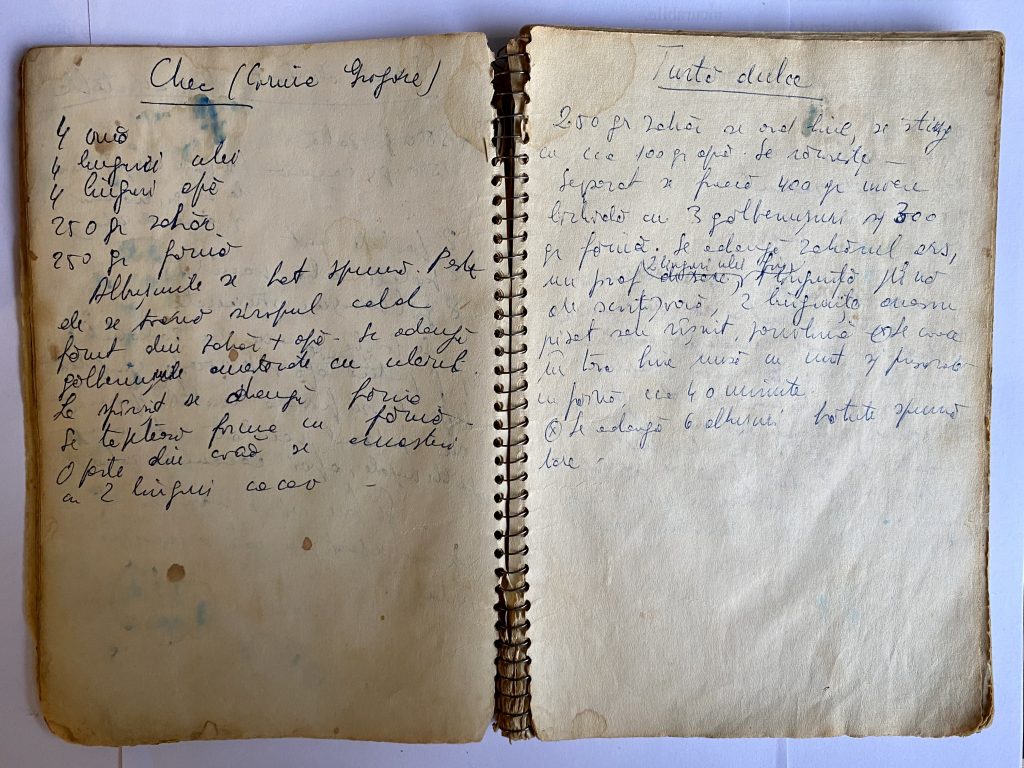 Chec (Cornia Grogore)
4 ouă
4 linguri ulei
4 linguri apă
250 gr zahăr
250 gr făină
Albușurile se bat spumă. Peste
ele se toarnă siropul cald
făcut din zahăr + apă. Se adaugă
gălbenușurile amestecate cu uleiul.
La sfârșit se adaugă făina.
Se tapetează forma cu făină.
O parte din cocă se amestecă
cu 2 linguri cacao
Turtă dulce
250 gr zahăr se ard bine, se sting
cu cca 100 gr apă. Se răcește -
Separat se freacă 400 gr miere
lichidă cu 3 gălbenușuri și 300
gr făină. Se adaugă zahărul ars,
un praf 2 linguri ulei, 1 linguriță plină
de scorțișoară, 2 lingurițe
pisat sau râșnit, coca
în tava bine unsă cu unt și presărată
cu făină, cca 40 minute.
⊗ Se adaugă 6 albușuri bătute spumă
tare -